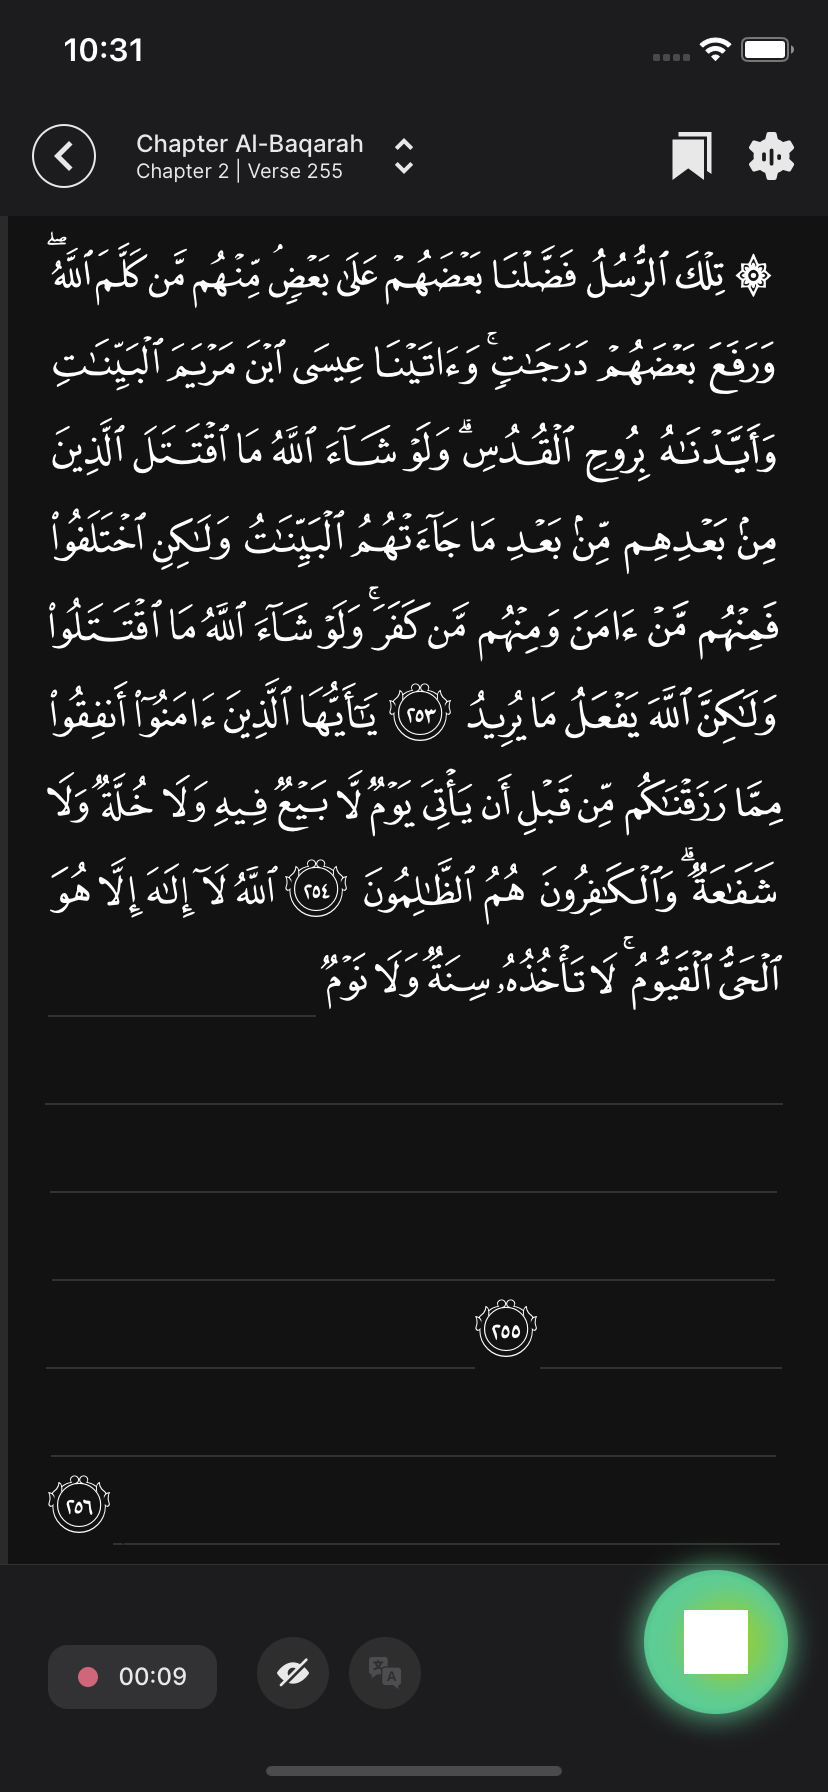 10:31
Chapter Al-Baqarah
Chapter 2 | Verse 255
۞ تِلْكَ ٱلرُّسُلُ فَضَّلْنَا بَعْضَهُمْ عَلَىٰ بَعْضٍۢ مِّنْهُم مَّن كَلَّمَ ٱللَّهُ ۖ
وَرَفَعَ بَعْضَهُمْ دَرَجَـٰتٍۢ ۚ وَءَاتَيْنَا عِيسَى ٱبْنَ مَرْيَمَ ٱلْبَيِّنَـٰتِ
وَأَيَّدْنَـٰهُ بِرُوحِ ٱلْقُدُسِ ۗ وَلَوْ شَآءَ ٱللَّهُ مَا ٱقْتَتَلَ ٱلَّذِينَ
مِنۢ بَعْدِهِم مِّنۢ بَعْدِ مَا جَآءَتْهُمُ ٱلْبَيِّنَـٰتُ وَلَـٰكِنِ ٱخْتَلَفُوا۟
فَمِنْهُم مَّنْ ءَامَنَ وَمِنْهُم مَّن كَفَرَ ۚ وَلَوْ شَآءَ ٱللَّهُ مَا ٱقْتَتَلُوا۟
وَلَـٰكِنَّ ٱللَّهَ يَفْعَلُ مَا يُرِيدُ ٢٥٣ يَـٰٓأَيُّهَا ٱلَّذِينَ ءَامَنُوٓا۟ أَنفِقُوا۟
مِمَّا رَزَقْنَـٰكُم مِّن قَبْلِ أَن يَأْتِىَ يَوْمٌۭ لَّا بَيْعٌۭ فِيهِ وَلَا خُلَّةٌۭ وَلَا
شَفَـٰعَةٌۭ ۗ وَٱلْكَـٰفِرُونَ هُمُ ٱلظَّـٰلِمُونَ ٢٥٤ ٱللَّهُ لَآ إِلَـٰهَ إِلَّا هُوَ
ٱلْحَىُّ ٱلْقَيُّومُ ۚ لَا تَأْخُذُهُۥ سِنَةٌۭ وَلَا نَوْمٌۭ
٢٥٥
٢٥٦
00:09